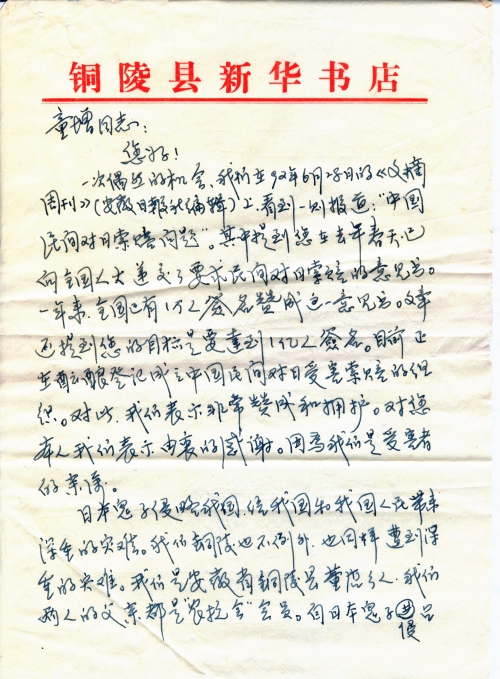 铜陵县新华书店
童增同志：
您好！
一次偶然的机会，我们在92年6月28日的《文摘
周刊》（安徽日报社编辑）上，看到一则报道：“中国
民间对日索赔问题”。其中提到您在去年春天已
向全国人大递交了要求民间对日索赔的意见书。
一年来，全国已有1万人签名赞成这一意见书。文章
还提到您的目标是要达到1亿人签名。目前正
在酝酿登记成立中国民间对日受害索赔的组
织。对此，我们表示非常赞成和拥护。对您
本人我们表示由衷的感谢。因为我们是受害者
的亲属。
日本鬼子侵略我国，给我国和我国人民带来
深重的灾难。我们铜陵也不例外，也同样遭到深
重的灾难。我们是安徽省铜陵县董店乡人，我们
两人的父亲都是“农抗会”会员。因日本鬼子
侵占